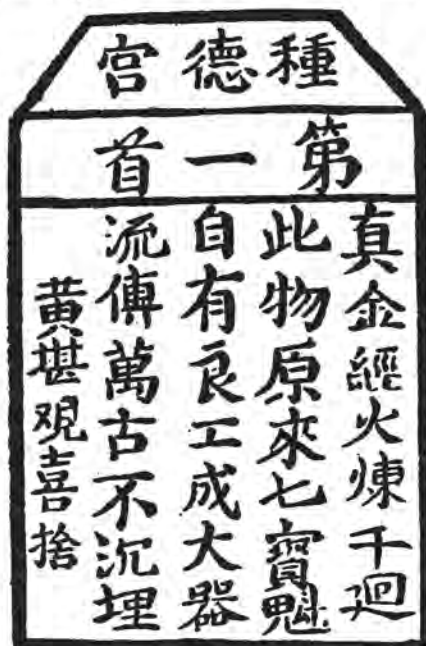 種德宮
第一首
真金經火煉千廻
此物原來七寶魁
自有良工成大器
流傳萬古不沉埋
黃堪观喜捨